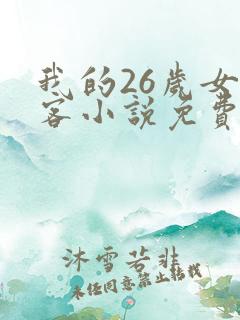 我的26歲女
客小說免費
沐雪若非
未经同意禁止转载